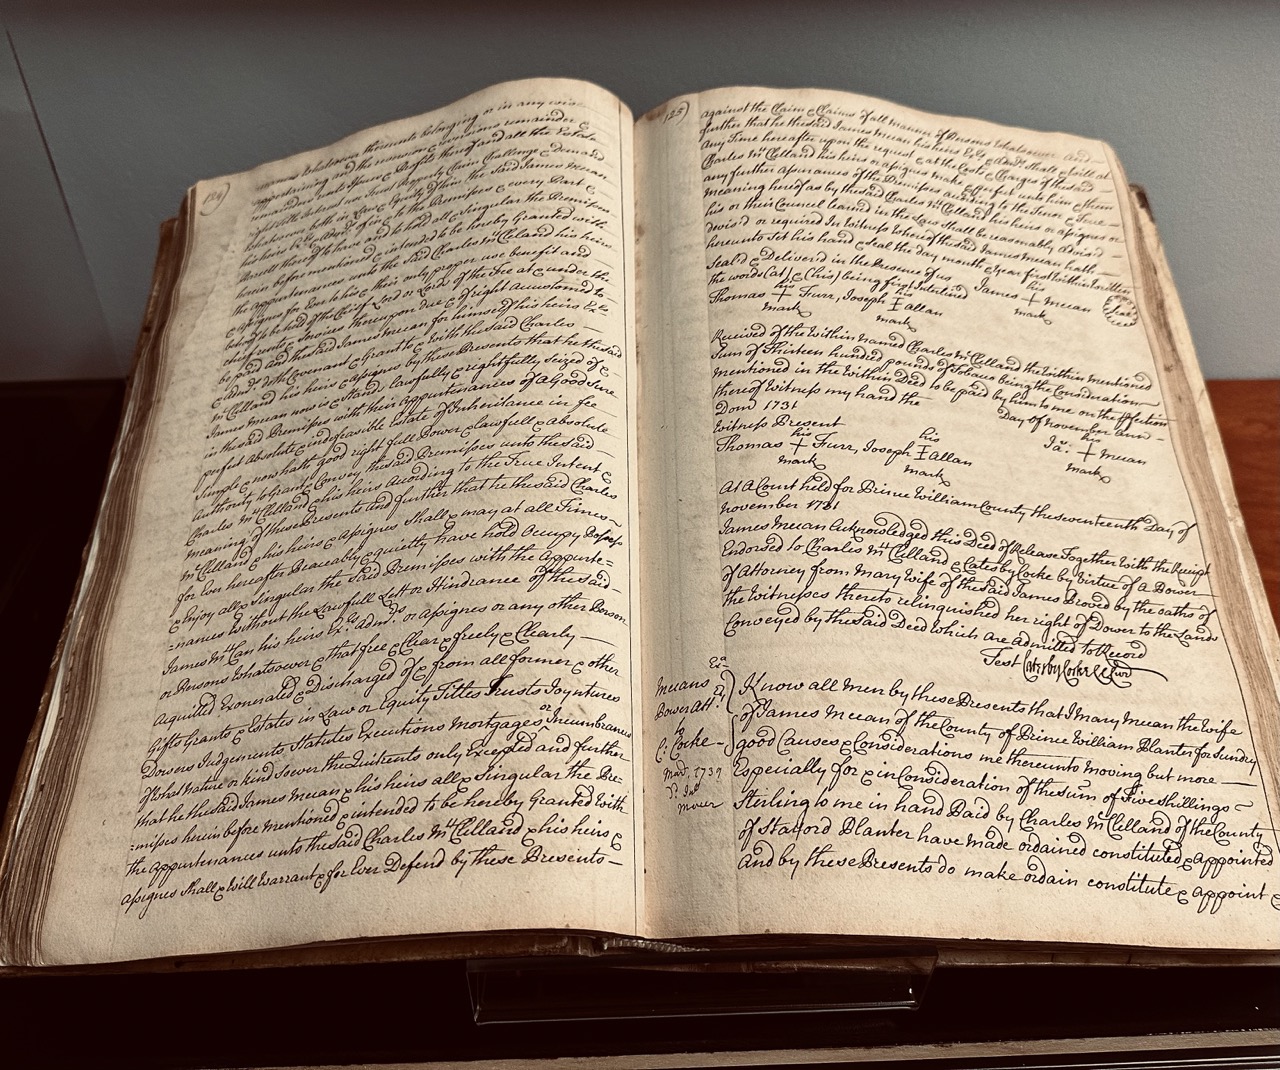 124)
whatsoever thereunto belonging or in any wise
appertaining and the reversion & reversions remainder &
remainders Rents Issues & Profits thereof and all the Estate
right title Interest use Trust Property Claim Challenge & demand
whatsoever both in Law & Equity of him the said James Mean
his heirs Exrs. Admrs. of in & to the Premisses & every Part &
Parcell thereof To have and to hold all & Singular the Premisses
herein before mentioned & intended to be hereby Granted with
the appurtenances unto the said Charles McClland his heirs
& assignes for Ever to his & their only proper use benefit and
behoof to be held of the Chief Lord or Lords of the Fee at & under the
chief rents & services thereupon due & of right accustomed to
be paid and the said James Mean for himself his heirs Exrs.
& Admrs. doth Covenant & grant to & with the said Charles
McClland his heirs & assignes by these Presents that he the said
James Mean now is & Stand, lawfully & rightfully seized of &
in the said Premisses with their Appurtenances of a Good Sure
perfect absolute & indefeasible Estate of Inheritance in fee
Simple & now hath good right full Power & lawfull & absolute
Authority to Grant & Convey the said Premisses unto the said
Charles McClland & his heirs According to the True Intent &
meaning of these Presents and further that he the said Charles
McClland & his heirs & Assignes Shall & may at all Times
for Ever hereafter Peaceably & quietly have hold Occupy Possess
& Enjoy all & Singular the Said Premisses with the Appurte=
=nances without the Lawfull Lett or Hindrance of the said
James McCan his heirs Exrs. Admrs. or Assignes or any other Person
or Persons Whatsoever & that free & Clear & freely & Clearly
Acquitted Exonerated & Discharged of & from all former & other
Gifts Grants & Estates in Law or Equity Titles Trusts Joyntures
Dowers Judgements Statutes Executions Mortgages or Incumbrances
of what Nature or kind soever the Quitrents only Excepted and further
that he the said James Mean & his heirs all & Singular the Pre=
=misses herein before mentioned & intended to be hereby Granted with
the appurtenances unto the said Charles McClland & his heirs &
assignes Shall & Will Warrant & for Ever Defend by these Presents
125)
against the Claim & Claims of all manner of Persons whatsoever And
further that he the said James Mean his heirs Exrs. & Admrs. Shall & will at
any Time hereafter upon the request & at the Costs & Charges of the said
Charles McClland his heirs or assignes make & perfect unto him & them
any further assurances of the Premisses according to the Tenor & True
meaning hereof as by the said Charles McClland his heirs or assignes or
his or their Council learned in the Law Shall be reasonably advis'd
devis'd or required In Witness Whereof the said James Mean hath
hereunto Set his hand & Seal the day month & year first within written
Seal'd & Deliver'd in the Presence of us
the words (at) & (his) being first Interlined
his his James his
Thomas + Furr, Joseph I allan + Mean Seal
mark mark mark
Received of the Within named Charles McClland the Within mentioned
Sum of Thirteen hundred pounds of Tobacco being the Consideration
mentioned in the Within Deed to be paid by him to me on the Perfection
thereof Witness my hand the Day of November Ann
Dom 1731
Witness Present
his his his
Thomas + Furr, Joseph I allan Ja: + Mean
mark mark mark
At a Court held for Prince William County the seventeenth Day of
November 1731
James Mean Acknowledged this Deed of Release Together with the Receipt
Endorsed to Charles McClland & Catesby Cocke by Virtue of a Power
of Attorney from Mary Wife of the said James Proved by the oaths of
the Witnesses thereto relinquished her right of Dower to the Lands
Conveyed by the said Deed which are admitted to Record
Test Catesby Cocke Cl Cur
Exd.
Means
Power Att.
to
C: Cocke
Know all Men by these Presents that I Mary Mean the Wife
of James Mean of the County of Prince William Planter for Sundry
good Causes & Considerations me thereunto moving but more
Especially for & in Consideration of the sum of Five Shillings
Sterling to me in hand Paid by Charles McClland of the County
of Stafford Planter have made ordained constituted & appointed
and by these Presents do make ordain constitute & appoint